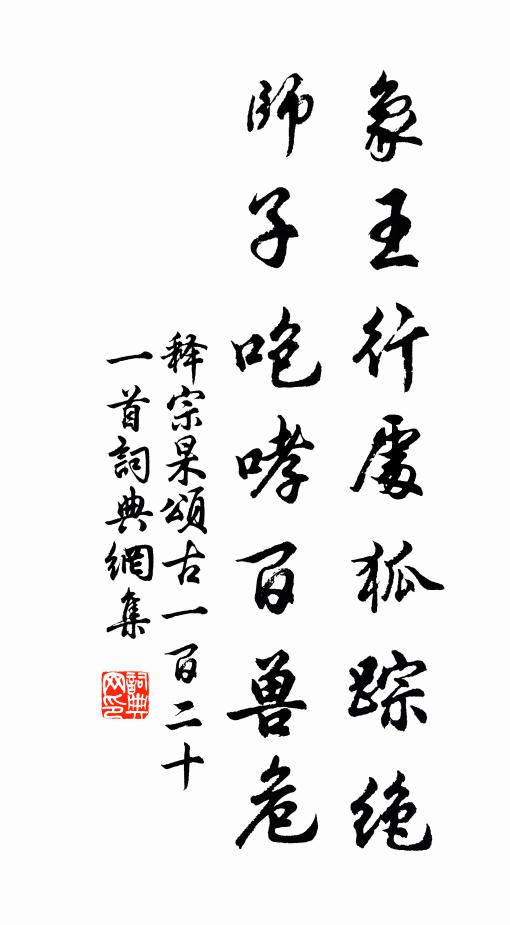 象王行處狐踪绝
師子咆哮百兽危
释宗杲頌古一百二十
一首詞典網集
詞典网印